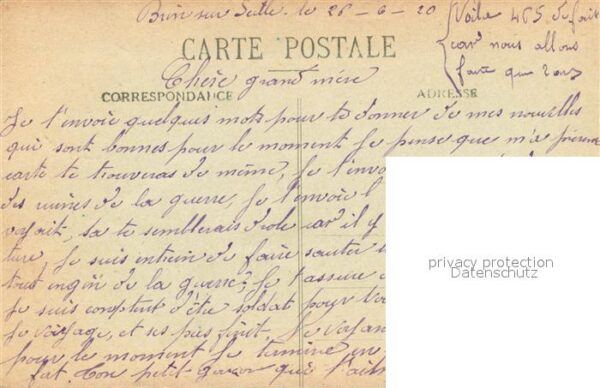 Brin sur Seille le 28-6-20
Voila 465 de fait
car nous allons
faite que 2 ans
CARTE POSTALE
Chère grand mère
CORRESPONDANCE
ADRESSE
Je t'envoie quelques mots pour te donner de mes nouvelles
qui sont bonnes pour le moment Je pense que m'a
carte te trouveras de même, Je t'envoi
des ruines de la guerre, Je t'envoie
voyait, sa te semblerais drole car il y
ture, Je suis entrein de faire sauter
tout engin de la guerre, Je t'assure
Je suis comptent d'étre soldat pour
Je voyage, et ses pas finit. Je
pour le moment Je termine en
fat. Ton petit garçon qui t'
privacy protection
Datenschutz